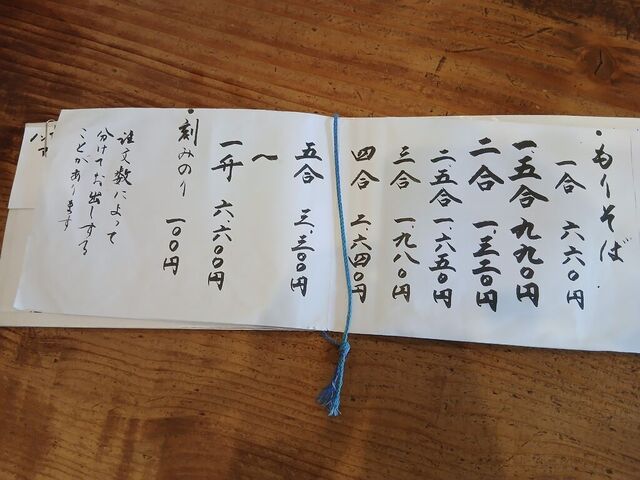 ・もりそば
一合 六六〇円
一五合 九九〇円
二合 一、三二〇円
二五合 一、六五〇円
三合 一、九八〇円
四合 二、六四〇円
五合 三、三〇〇円
〜
一升 六、六〇〇円
・刻みのり 一〇〇円
注文数によって
分けてお出しする
ことがあります